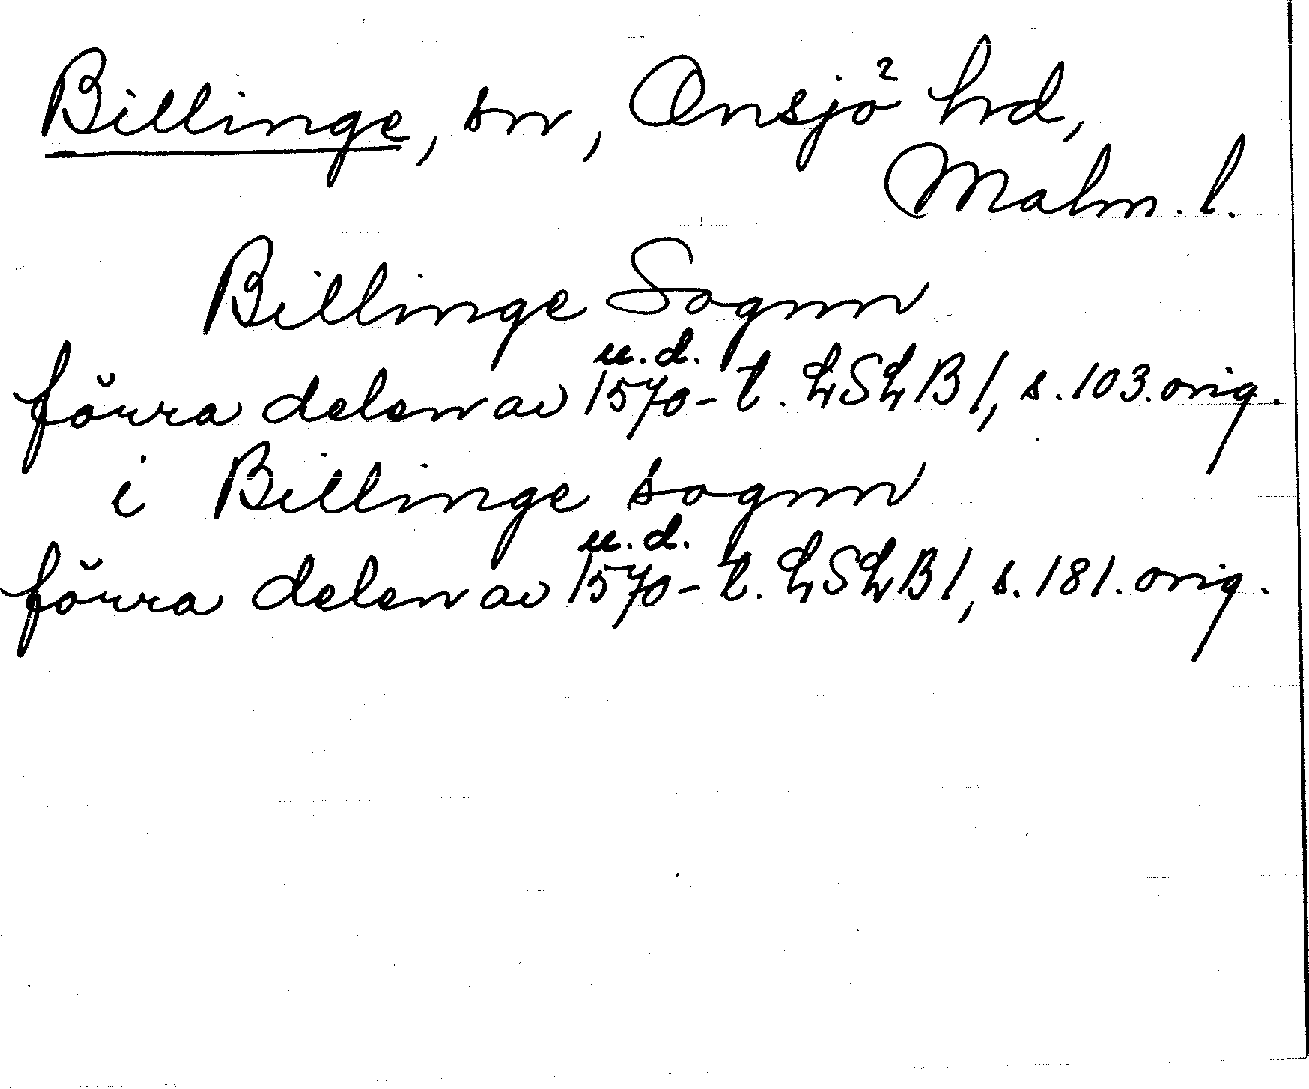 Billinge, sn, Onsjö hrd,
Malm. l.
Billinge Sognn
u. d.
förra delen av 1570-t. LSLB 1, s. 103. orig.
i Billinge sognn
u. d.
förra delen av 1570-t. LSLB 1, s. 181. orig.